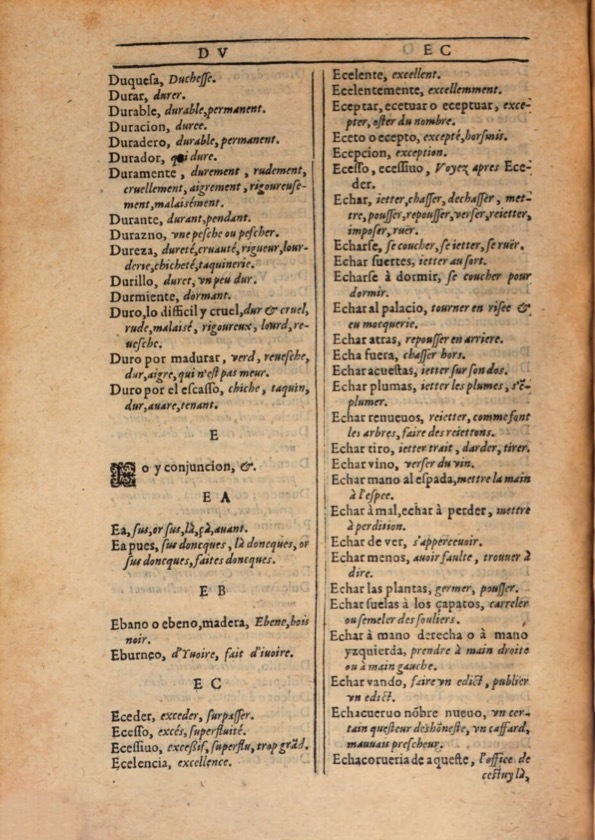 D V
Duqueſa, Ducheſſe.
Durar, durer.
Durable, durable, permanent.
Duracion, duree.
Duradero, durable, permanent.
Durador, qui dure.
Duramente, durement, rudement,
cruellement, aigrement, rigoureuſe-
ment, malaisément.
Durante, durant, pendant.
Durazno, vne peſche ou peſcher.
Dureza, dureté, cruauté, rigueur, lour-
derie, chicheté, taquinerie.
Durillo, duret, vn peu dur.
Durmiente, dormant.
Duro, lo difficil y cruel, dur & cruel,
rude, malaisé, rigoureux, lourd, re-
ueſche.
Duro por madurar, verd, reueſche,
dur, aigre, qui n'eſt pas meur.
Duro por el eſcaſſo, chiche, taquin,
dur, auare, tenant.
E
E o y conjuncion, &.
E A
Ea, ſus, or ſus, là, çà, auant.
Ea pues, ſus doncques, là doncques, or
ſus doncques, faites doncques.
E B
Ebano o ebeno, madera, Ebene, bois
noir.
Eburneo, d'Yuoire, fait d'iuoire.
E C
Eceder, exceder, ſurpaſſer.
Eceſſo, excés, ſuperfluité.
Eceſſiuo, exceſſif, ſuperflu, trop grãd.
Ecelencia, excellence.
E C
Ecelente, excellent.
Ecelentemente, excellemment.
Eceptar, ecetuar o eceptuar, exce-
pter, oſter du nombre.
Eceto o ecepto, excepté, horſmis.
Ecepcion, exception.
Eceſſo, eceſſiuo, Voyez apres Ece-
der.
Echar, ietter, chaſſer, dechaſſer, met-
tre, pouſſer, repouſſer, verſer, reietter,
impoſer, ruër.
Echarſe, ſe coucher, ſe ietter, ſe ruër.
Echar ſuertes, ietter au ſort.
Echarſe à dormir, ſe coucher pour
dormir.
Echar al palacio, tourner en riſee &
en mocquerie.
Echar atras, repouſſer en arriere.
Echa fuera, chaſſer hors.
Echar acueſtas, ietter ſur ſon dos.
Echar plumas, ietter les plumes, s'ē-
plumer.
Echar renueuos, reietter, comme font
les arbres, faire des reiettons.
Echar tiro, ietter trait, darder, tirer.
Echar vino, verſer du vin.
Echar mano al eſpada, mettre la main
à l'eſpee.
Echar à mal, echar à perder, mettre
à perdition.
Echar de ver, s'apperceuoir.
Echar menos, auoir faulte, trouuer à
dire.
Echar las plantas, germer, pouſſer.
Echar ſuelas à los çapatos, carreler
ou ſemeler des ſouliers.
Echar à mano derecha o à mano
yzquierda, prendre à main droite
ou à main gauche.
Echar vando, faire vn edict, publier
vn edict.
Echacueruo nõbre nueuo, vn cer-
tain queſteur deshõneſte, vn caffard,
mauuais preſcheur.
Echacorueria de aqueſte, l'office de
ceſtuy là,